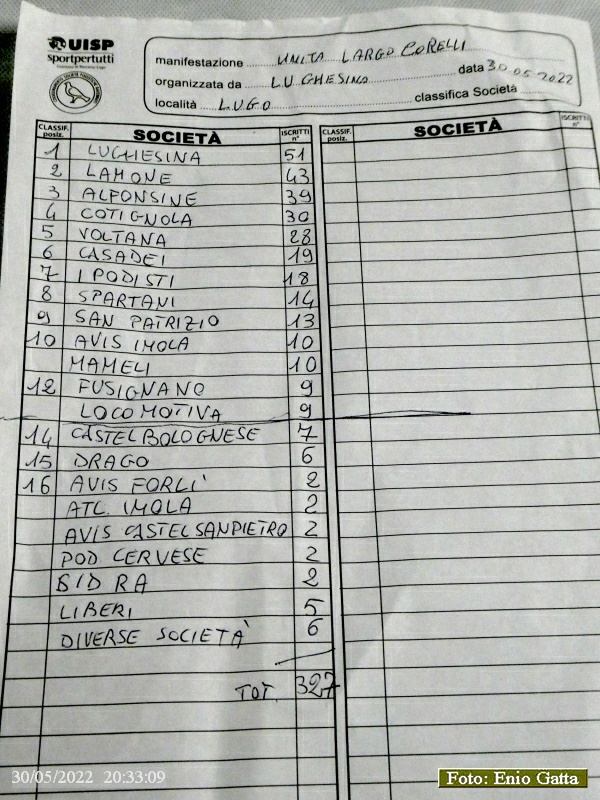 UISP
sportpertutti
manifestazione UNITA LARGO CORELLI
organizzata da LUGHESINA data 30 05 2022
località LUGO classifica Società
CLASSIF. posiz. SOCIETÀ ISCRITTI n° CLASSIF. posiz. SOCIETÀ ISCRITTI n°
1 LUGHESINA 51
2 LAMONE 43
3 ALFONSINE 39
4 COTIGNOLA 30
5 VOLTANA 28
6 CASADEI 19
7 I PODISTI 18
8 SPARTANI 14
9 SAN PATRIZIO 13
10 AVIS IMOLA 10
MAMELI 10
12 FUSIGNANO 9
LOCOMOTIVA 9
14 CASTELBOLOGNESE 7
15 DRAGO 6
16 AVIS FORLI' 2
ATL. IMOLA 2
AVIS CASTELSANPIETRO 2
POD. CERVESE 2
SIDRA 2
LIBERI 5
DIVERSE SOCIETÀ 6
TOT. 327
30/05/2022 20:33:09
Foto: Enio Gatta